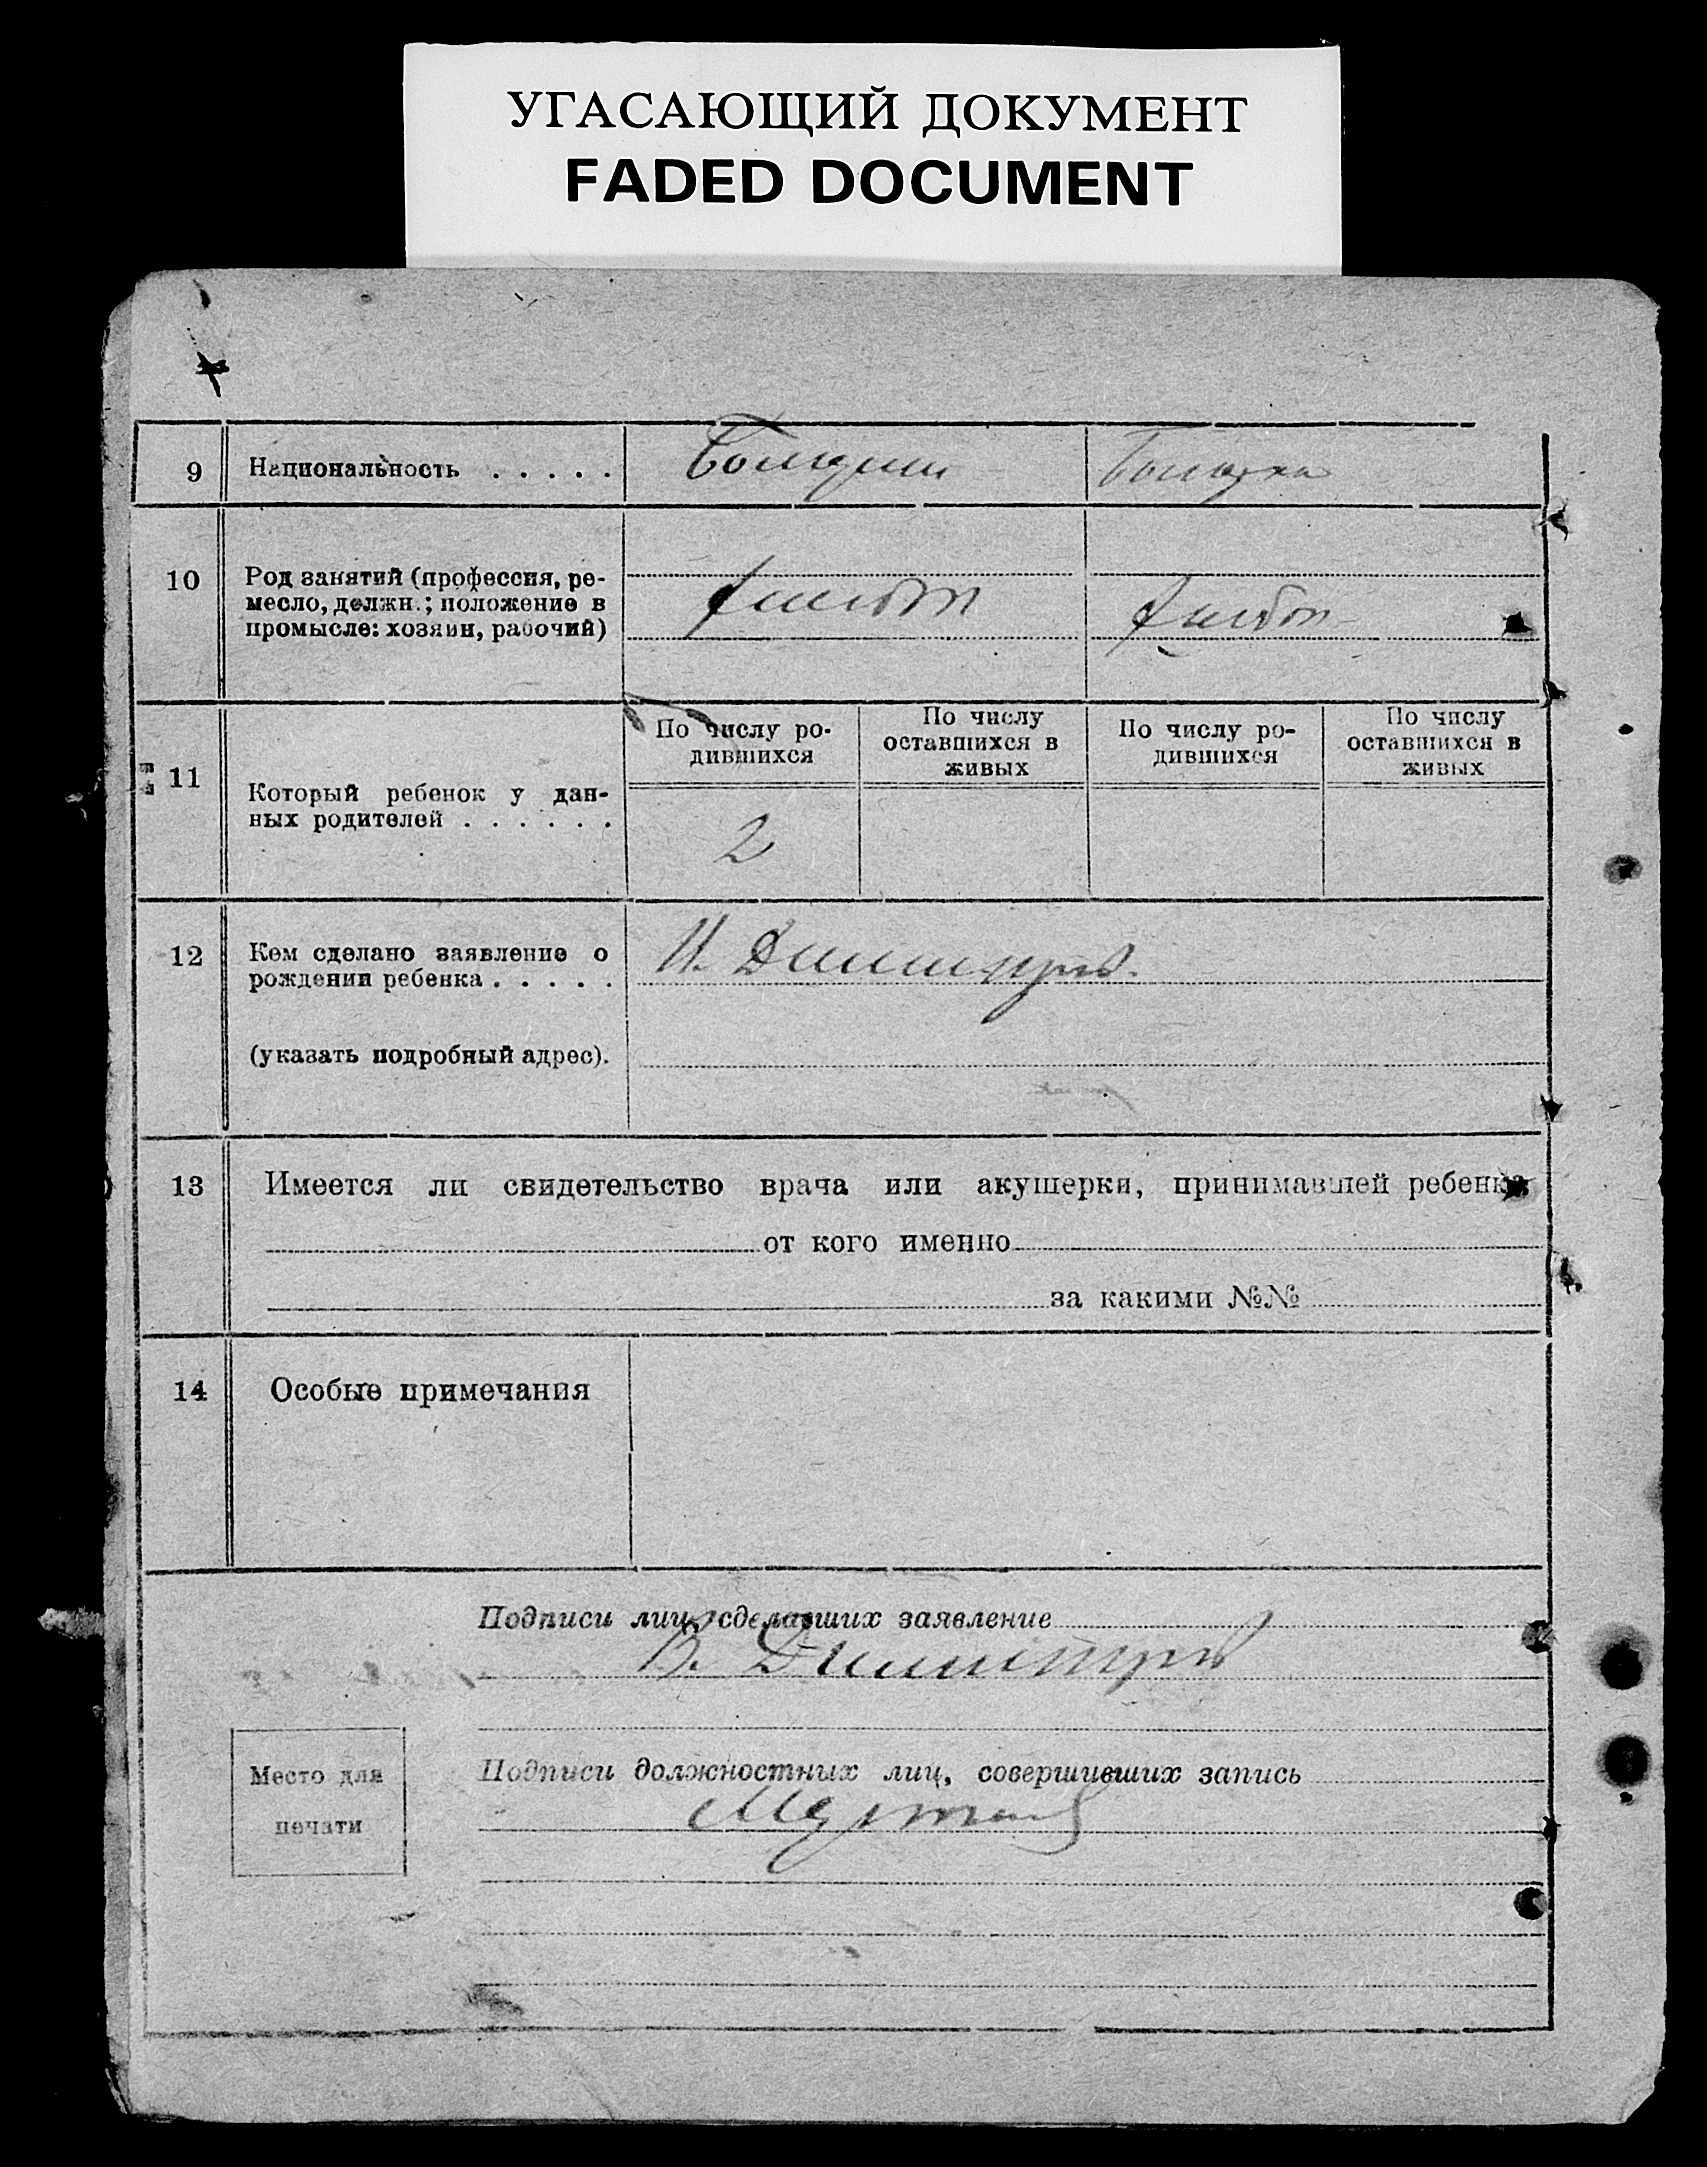 УГАСАЮЩИЙ ДОКУМЕНТ
FADED DOCUMENT
9 Национальность . . . . .
10 Род занятий (профессия, ре-
месло, должн.; положение в
промысле: хозяин, рабочий)
По числу ро-
дившихся
По числу
оставшихся в
живых
По числу ро-
дившихся
По числу
оставшихся в
живых
11 Который ребенок у дан-
ных родителей . . . . . .
2
12 Кем сделано заявление о
рождении ребенка . . . . .
(указать подробный адрес).
13 Имеется ли свидетельство врача или акушерки, принимавшей ребенка
от кого именно
за какими №№
14 Особые примечания
Подписи лиц, сделавших заявление
Место для
печати
Подписи должностных лиц, совершивших запись